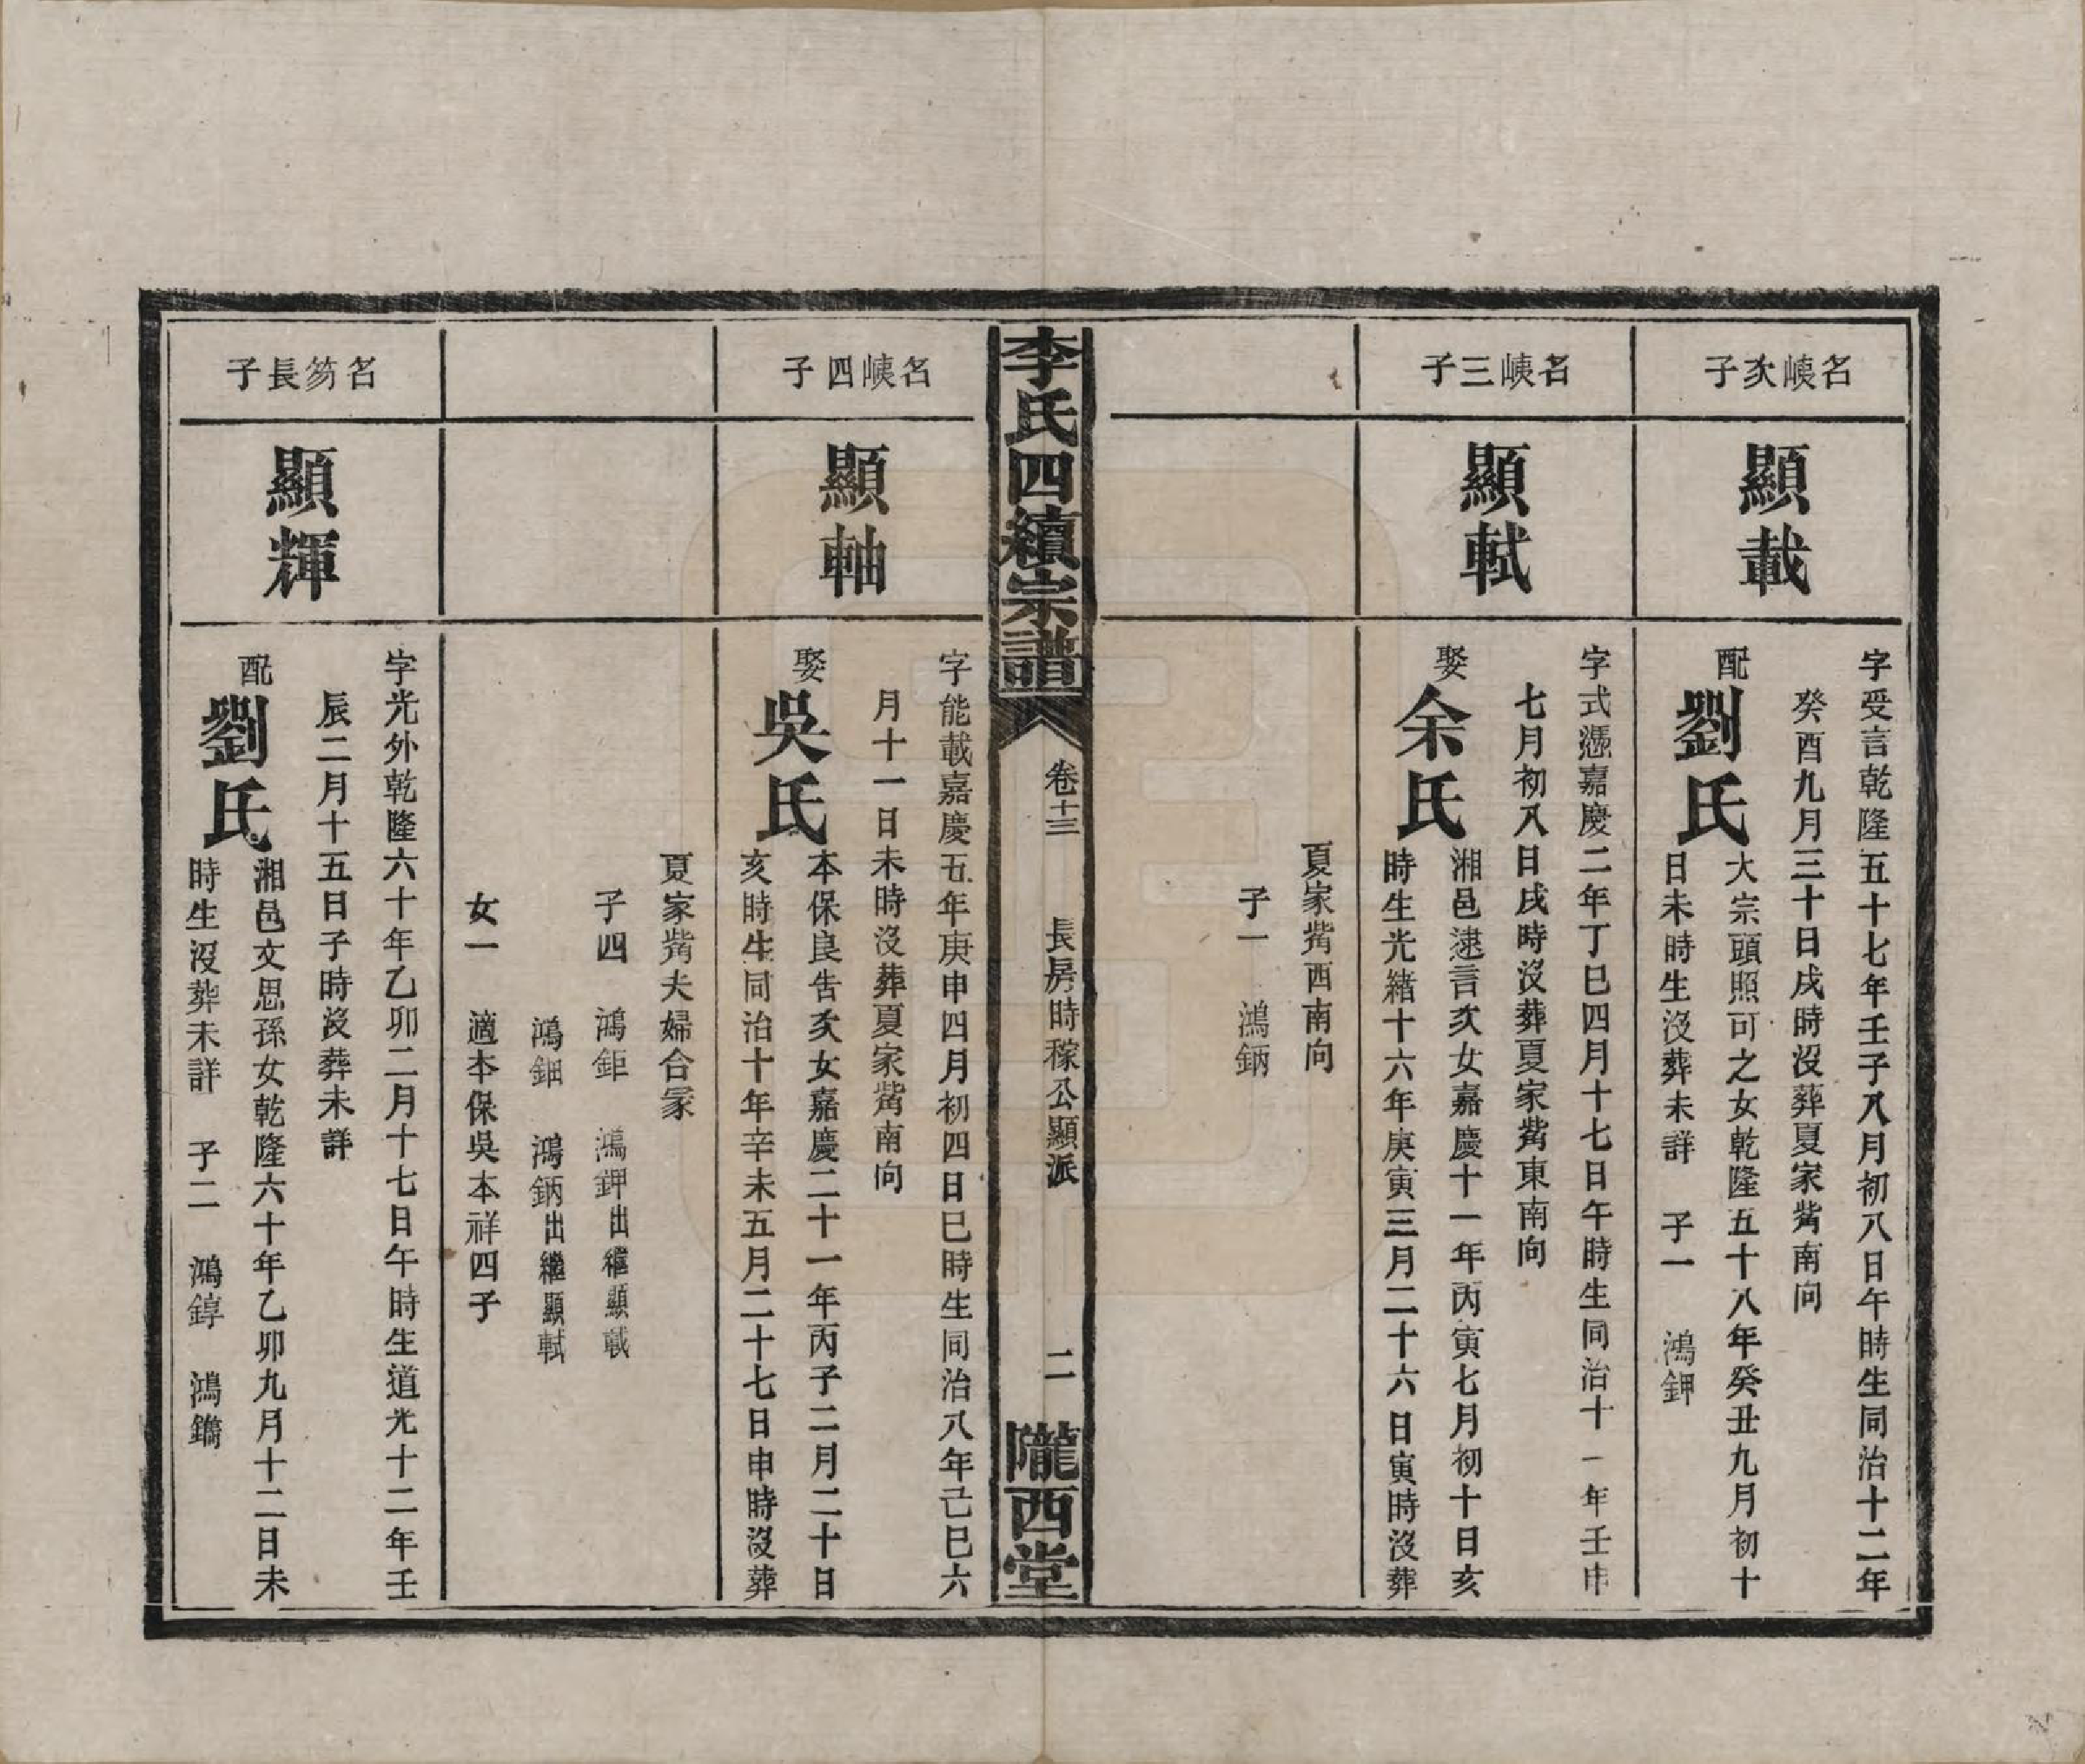 名峽次子
顯載
字受言乾隆五十七年壬子八月初八日午時生同治十二年
癸酉九月三十日戌時沒葬夏家觜南向
配劉氏
大宗頭照可之女乾隆五十八年癸丑九月初十
日未時生沒葬未詳　子一　鴻鉀
名峽三子
顯軾
字式憑嘉慶二年丁巳四月十七日午時生同治十一年壬申
七月初八日戌時沒葬夏家觜東南向
娶余氏
湘邑逮言次女嘉慶十一年丙寅七月初十日亥
時生光緒十六年庚寅三月二十六日寅時沒葬
夏家觜西南向
子一　鴻鈵
李氏四續宗譜
卷十三
長房時稼公顯派
二
隴西堂
名峽四子
顯軸
字能載嘉慶五年庚申四月初四日巳時生同治八年己巳六
月十一日未時沒葬夏家觜南向
娶吳氏
本保良告次女嘉慶二十一年丙子二月二十日
亥時生同治十年辛未五月二十七日申時沒葬
夏家觜夫婦合冢
子四　鴻鉅　鴻鉀出繼顯載
鴻鈿　鴻鈵出繼顯軾
女一　適本保吳本祥四子
名笏長子
顯輝
字光外乾隆六十年乙卯二月十七日午時生道光十二年壬
辰二月十五日子時沒葬未詳
配劉氏
湘邑文思孫女乾隆六十年乙卯九月十二日未
時生沒葬未詳　子二　鴻錞　鴻鐫